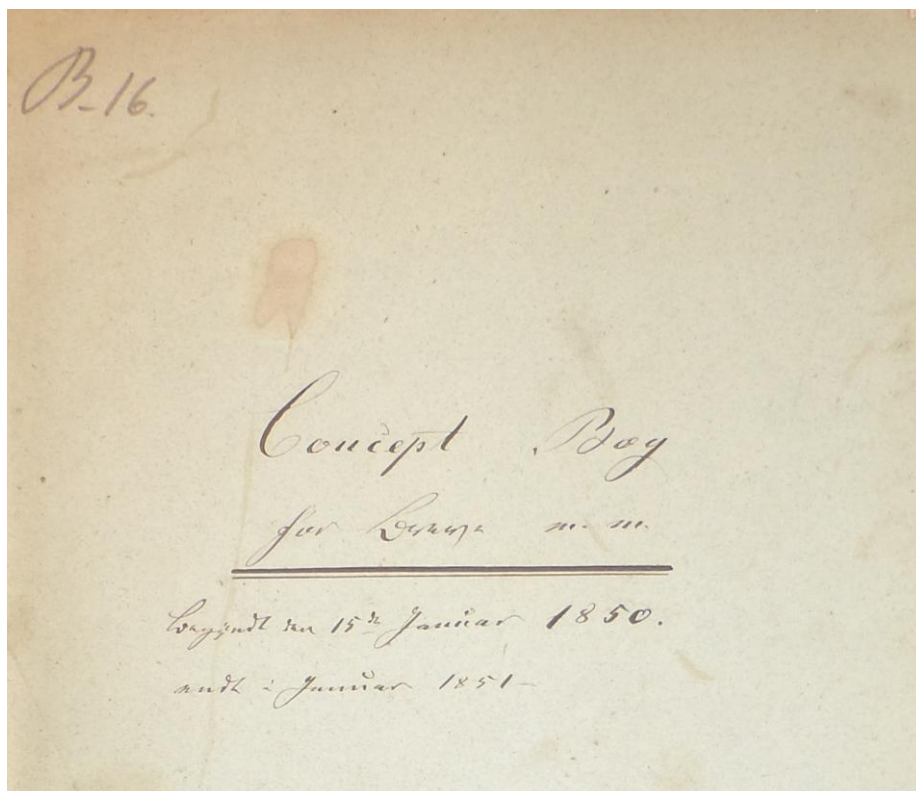 B-16.
Concept Bog
for Breve m. m.
begyndt den 15de Januar 1850.
endt i Januar 1851-